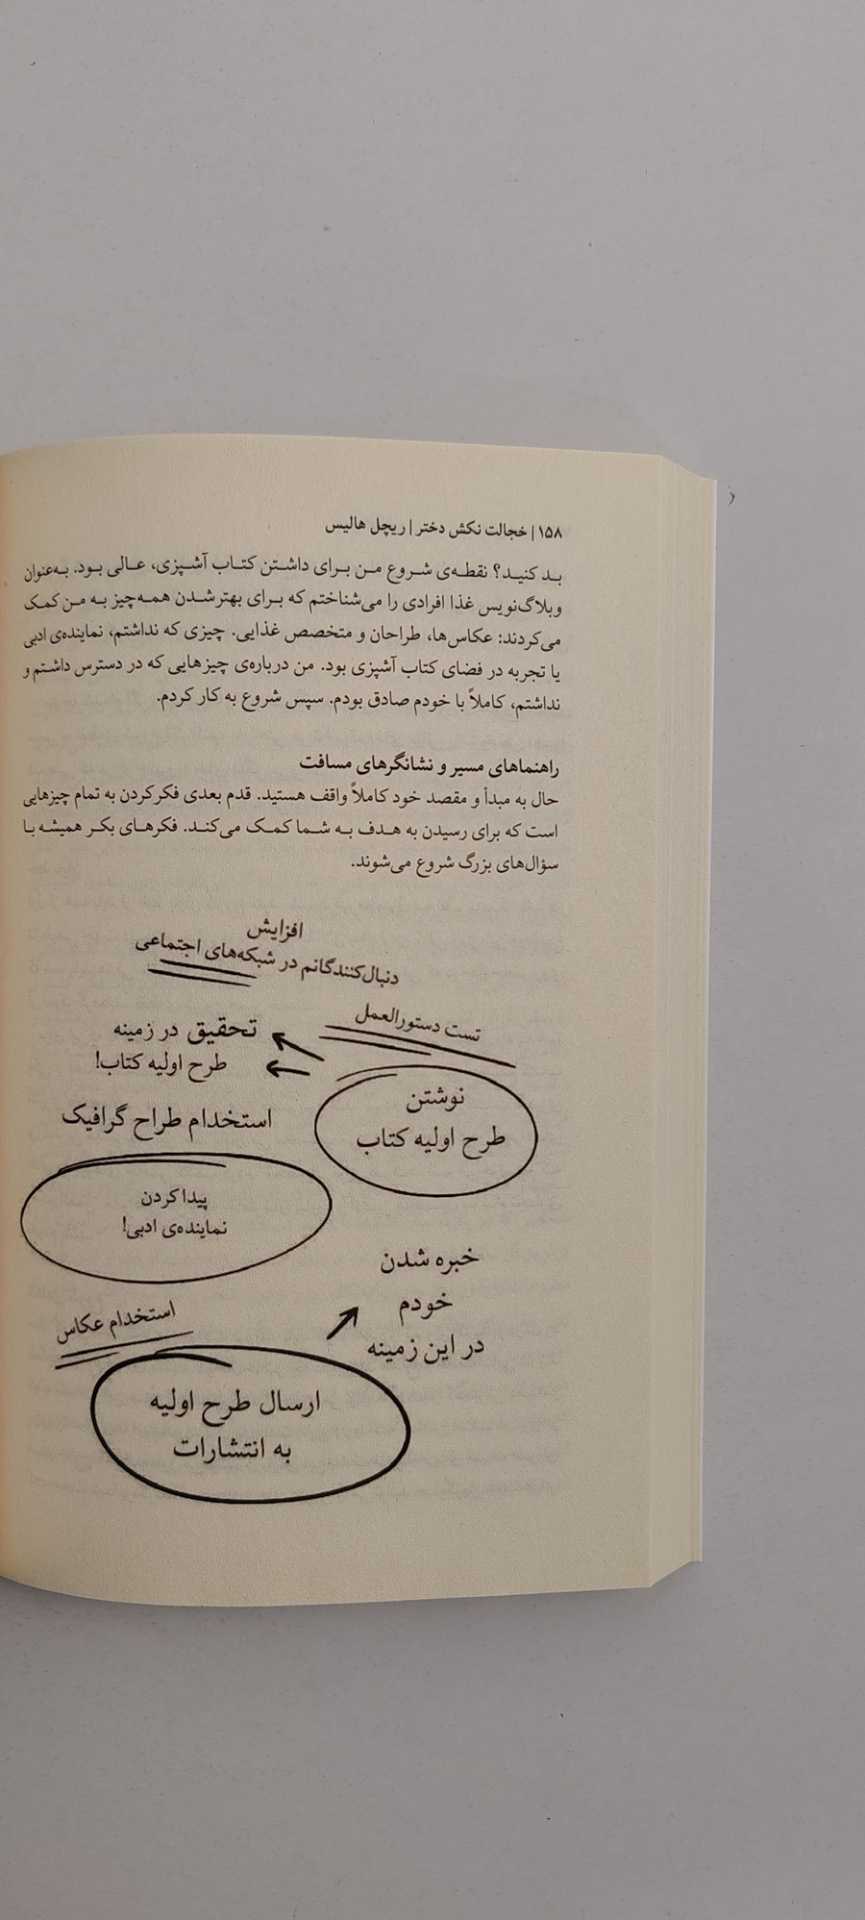 ۱۵۸ | خجالت نکش دختر | ریچل هالیس
بد کنید؟ نقطه‌ی شروع من برای داشتن کتاب آشپزی، عالی بود. به‌عنوان
وبلاگ‌نویس غذا افرادی را می‌شناختم که برای بهترشدن همه‌چیز به من کمک
می‌کردند: عکاس‌ها، طراحان و متخصص غذایی. چیزی که نداشتم، نماینده‌ی ادبی
یا تجربه در فضای کتاب آشپزی بود. من درباره‌ی چیزهایی که در دسترس داشتم و
نداشتم، کاملاً با خودم صادق بودم. سپس شروع به کار کردم.
راهنماهای مسیر و نشانگرهای مسافت
حال به مبدأ و مقصد خود کاملاً واقف هستید. قدم بعدی فکرکردن به تمام چیزهایی
است که برای رسیدن به هدف به شما کمک می‌کند. فکرهای بکر همیشه با
سؤال‌های بزرگ شروع می‌شوند.
افزایش
دنبال‌کنندگانم در شبکه‌های اجتماعی
تست دستورالعمل
تحقیق در زمینه
طرح اولیه کتاب!
نوشتن
طرح اولیه کتاب
استخدام طراح گرافیک
پیداکردن
نماینده‌ی ادبی!
خبره شدن
خودم
در این زمینه
استخدام عکاس
ارسال طرح اولیه
به انتشارات